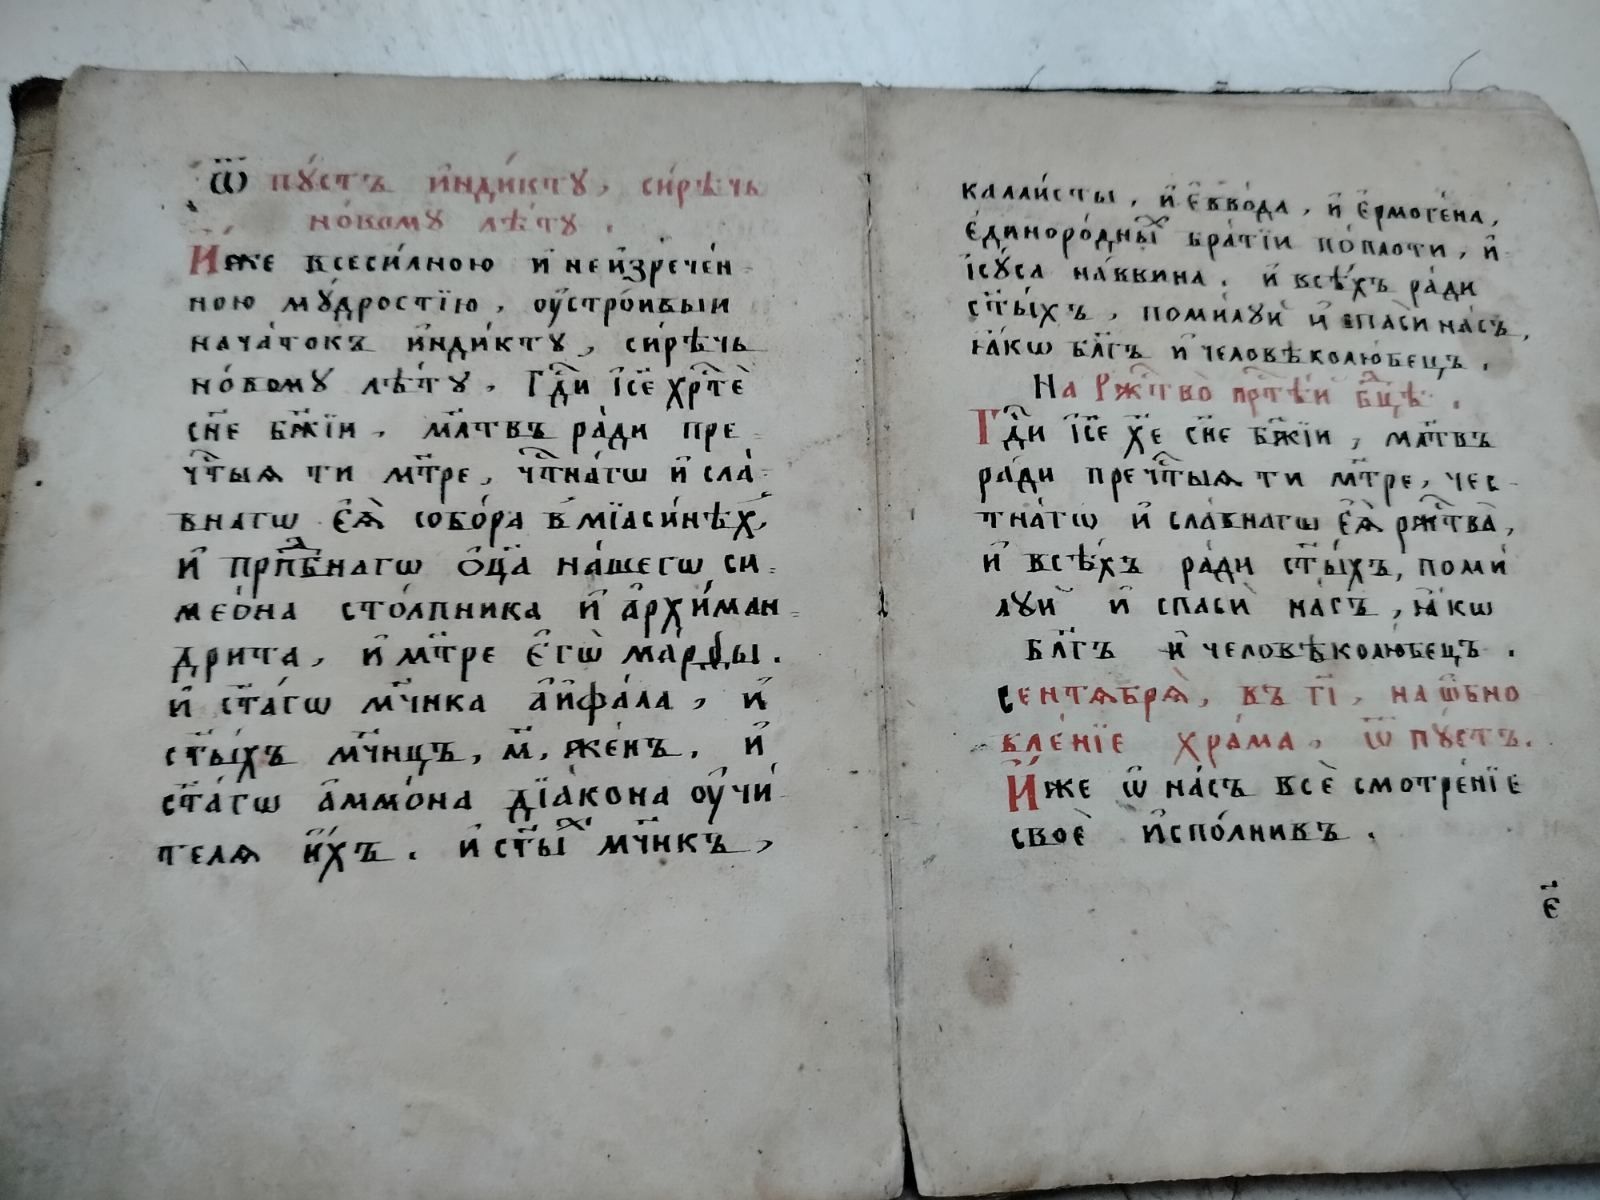 Ѿ пꙋ́стъ и҆нди́ктꙋ, си́рѣчь
но́вомꙋ лѣ́тꙋ.
И҆́же всеси́лною и҆ неи҆зрече́н-
ною мꙋ́дростїю, ᲂу҆стро́ивыи
нача́токъ и҆нди́ктꙋ, си́рѣчь
но́вомꙋ лѣ́тꙋ. Гдⷭ҇и І҆с҃е хрⷭ҇тѐ
сн҃е бж҃їи, мл҃твъ ра́ди пре-
чⷭ҇тыѧ ти мт҃ре, чⷭ҇тна́гѡ и҆ сла́-
внагѡ є҆ѧ̀ собо́ра в мїаси́нѣхъ,
и҆ прпⷣбнагѡ ѻ҆ц҃а на́шегѡ си-
мео́на сто́лпника и҆ а҆рхи́ман-
дрита, и҆ мт҃ре є҆гѡ̀ марѳы.
и҆ ст҃а́гѡ мч҃нка а҆и҆фа́ла, и҆
ст҃ы́хъ мч҃нцъ, м҃, же́нъ, и҆
ст҃а́гѡ а҆ммо́на дїа́кона ᲂу҆чи́-
телѧ и҆́хъ. и҆ ст҃ыⷯ мч҃нкъ,
калли́сты, и҆ є҆вво́да, и҆ є҆рмоге́на,
є҆диноро́дныⷯ бра́тїи по́плоти, и҆
і҆сꙋ́са на́ввина. и҆ всѣ́хъ ра́ди
ст҃ы́хъ, поми́лꙋи и҆ спаси на́съ,
ꙗ҆́кѡ бл҃гъ и҆ человѣколю́бецъ.
На Ржⷭ҇тво̀ прⷭ҇тѣ́и бцⷣѣ.
Гдⷭ҇и І҆с҃е х҃е сн҃е бж҃їи, мл҃твъ
ра́ди пречⷭ҇тыѧ ти мт҃ре, чес-
тна́гѡ и҆ сла́внагѡ є҆ѧ̀ ржⷭ҇тва̀,
и҆ всѣ́хъ ра́ди ст҃ы́хъ, поми́-
лꙋи и҆ спасѝ на́съ, ꙗ҆́кѡ
бл҃гъ и҆ человѣколю́бецъ.
сентѧбрѧ̀, въ г҃і, на ѡ҆бно
вле́нїе хра́ма, ѿ пꙋ́стъ.
И҆́же ѿ на́съ всѐ смотре́нїе
своѐ и҆спо́лнивъ.
є҃